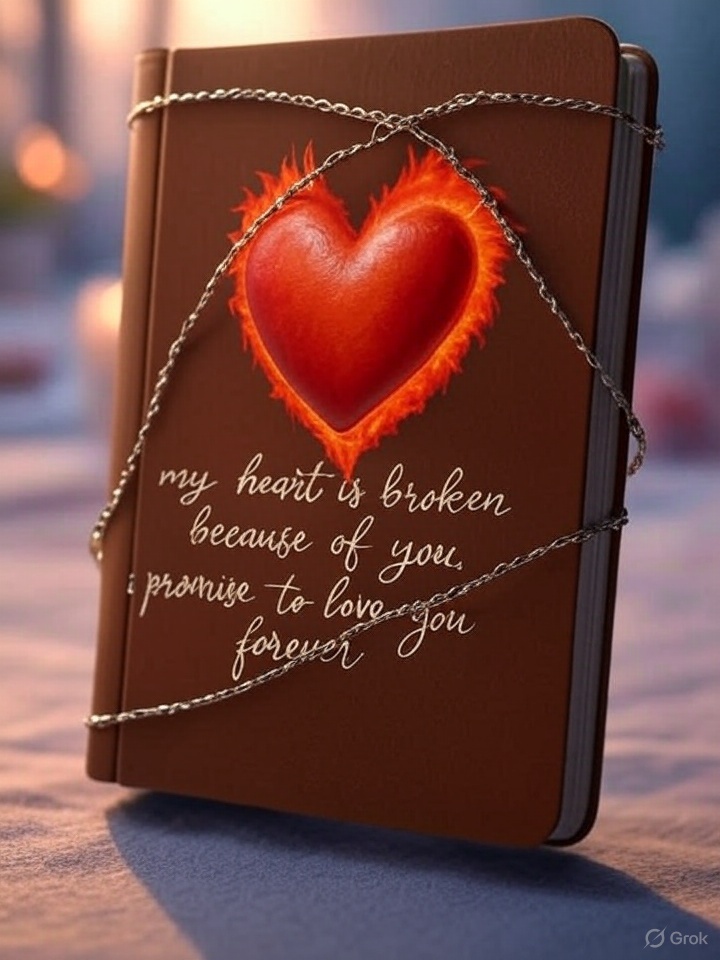 my heart is broken
beeause of you.
i promise to love you
forever
Grok